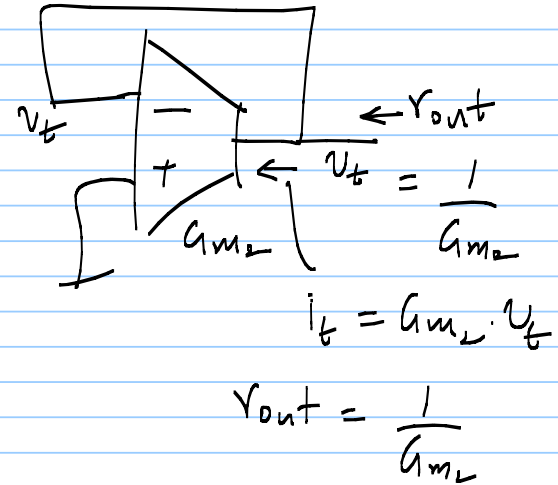 v_t
−
← r_out
+
← v_t = 1/G_m2
G_m2
i_t = G_m2 · v_t
r_out = 1/G_m2